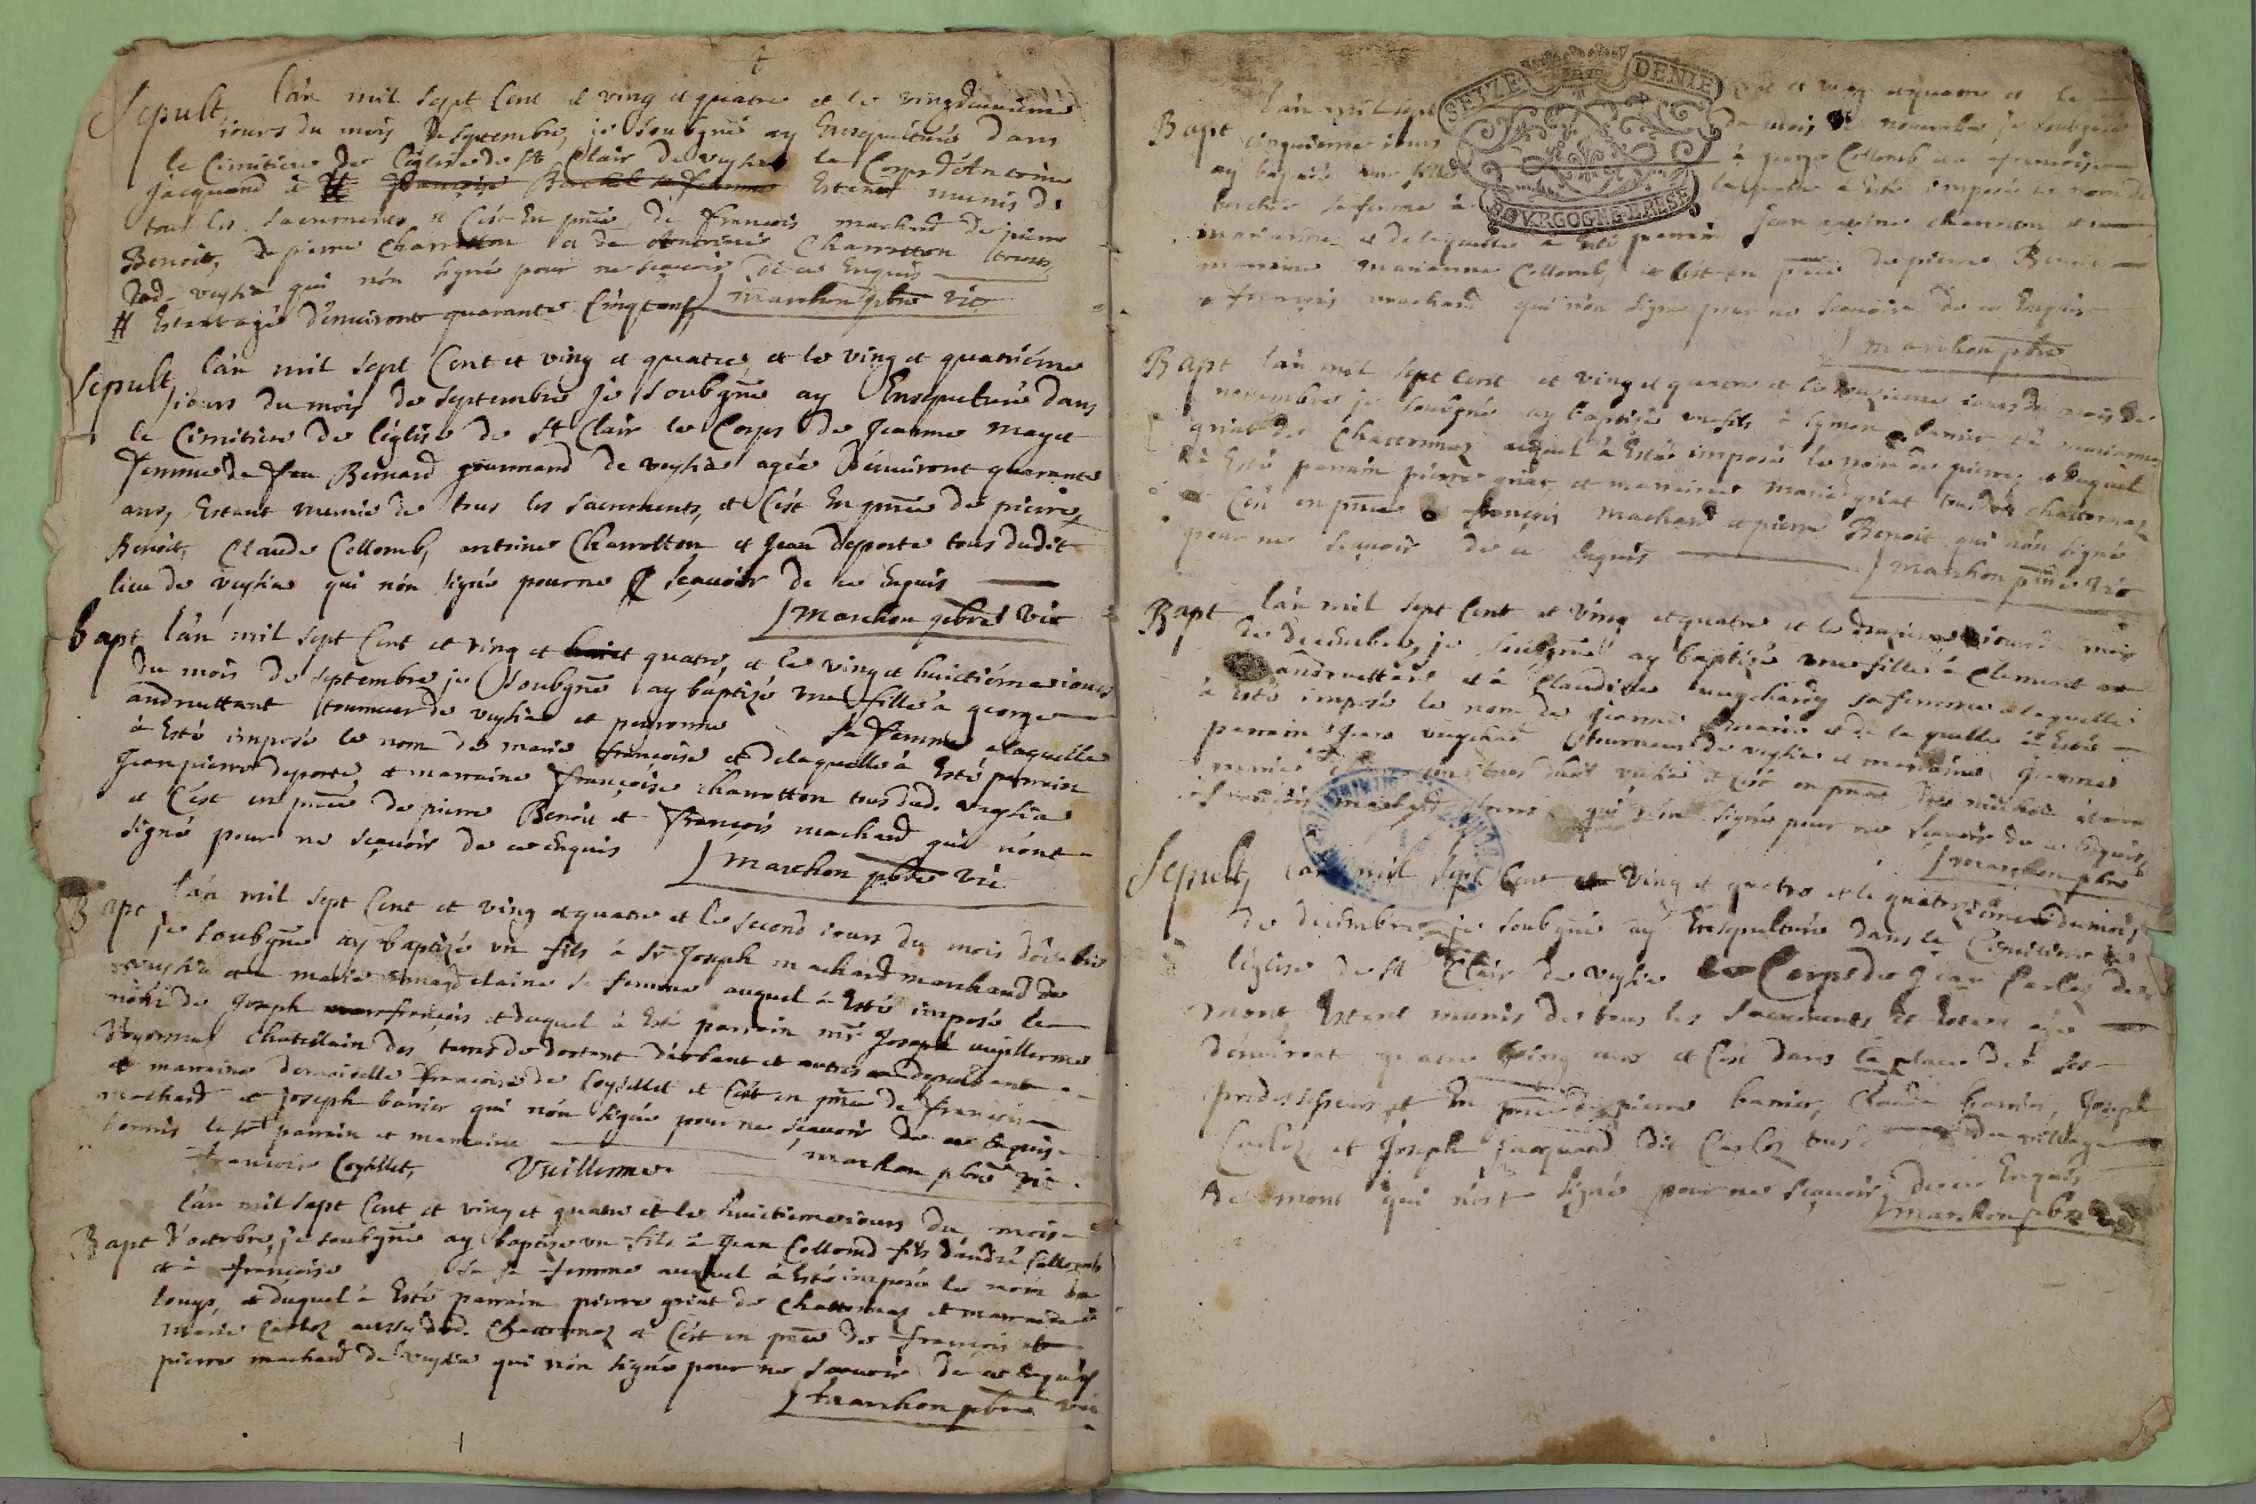 Sepult, l'an mil sept Cent et ving et quatre et le vingdeuxieme
iours du mois de septembre, je soubgné ay Ensepulturé dans
le Cimitiere de l'eglise de st Clair de veysia le Corps d'Antoine
Jacquand et # françoise sa femme Estant munis de
tous les sacrements et C'est En pnce de françois machard de pierre
Benoit, de pierre Charrotton et de Charrotton trous
dud. veysia qui n'on signé pour ne sçavoir de ce Enquis
marchon pbre vic
# Estant agé d'enuiront quarante Cinq
Sepult, l'an mil sept Cent et ving et quatre, et le ving et quatriéme
iours du mois de septembre je soubgné ay Ensepulturé dans
le Cimitiere de l'eglise de st Clair le Corps de Jeanne mayet
femme de feu Bernard gourmand de veysia agée d'enuiront quarante
ans, Estant munie de tous les sacrements, et C'est En pnce de pierre
Benoit, Claude Collomb, antoine Charrotton et Jean deporte tous dudit
lieu de veysia qui n'on signé pour ne sçavoir de ce Enquis
marchon pbre vic
bapt l'an mil sept Cent et ving et quatre, et le ving et huictiéme iours
du mois de septembre je soubgné ay baptizé une fille a george
andruettant tourneur de veysia et peronne sa femme a laquelle
à Esté imposé le nom de marie françoise et de laquelle à Esté parrain
Jean pierre deporte, et marraine françoise charrotton tous dud. veysia
et C'est en pnce de pierre Benoit et françois machard qui n'ont
signé pour ne sçavoir de ce Enquis
marchon pbre vic
Bapt l'an mil sept Cent et ving et quatre et le second iours du mois d'octobre
je soubgné ay baptizé un fils à sr Joseph machard marchand de
veysia et a marie magdelaine sa femme auquel à Esté imposé le
nom de Joseph françois et duquel à Esté parrain mr Joseph vuillerme
chatellain des terres de dortant et autres
et marraine demoiselle françoise de Coysellet et C'est en pnce de françois
machard et joseph banier qui n'on signé pour ne sçavoir de ce Enquis
hormis le sr parrain et marraine
françoise Coysellet, Vuillerme marchon pbre vic
l'an mil sept Cent et ving et quatre et le huictieme iours du mois
Bapt d'octobre, je soubgné ay baptizé un fils à Jean Collomb fils d'andré Collomb
et à françoise sa femme auquel à Esté imposé le nom de
louys, et duquel à Esté parrain pierre griat de Chattonnaz et marraine
marie Carloz aussy dud. Chattonnaz et C'est en pnce de françois et
pierre machard de veysia qui n'on signé pour ne sçavoir de ce Enquis
marchon pbre vic
SEIZE DENIE
BOVRGOGNE BRESSE
l'an mil sept Cent et ving et quatre et le
Bapt cinquieme iours du mois de novembre je soubgné
ay baptizé une fille à Collomb et a françoise
sa femme à laquelle à Esté imposé le nom de
marianne et de laquelle à Esté parrain Jean antoine charroton et
marraine marianne Collomb, et C'est en pnce de pierre Benoit
et françois machard qui n'on signé pour ne sçavoir de ce Enquis
marchon pbre
Bapt l'an mil sept Cent et ving et quatre et le iours du mois de
novembre je soubgné ay baptizé un fils à symon banier et à marianne
griat de Chattonnaz auquel à Esté imposé le nom de pierre, et duquel
à Esté parrain pierre griat, et marraine marie griat tous de Chattonnaz
C'est en pnce de françois machard et pierre Benoit qui n'on signé
pour ne sçavoir de ce Enquis
marchon pbre vic
Bapt l'an mil sept Cent et ving et quatre et le iours du mois
de decembre, je soubgné ay baptizé une fille à Clement
andruettant et à Claudine sa femme a laquelle
à Esté imposé le nom de jeanne marie et de laquelle à Esté
parrain Jean tourneur de veysia et marraine Jeanne
marie tous dudit veysia et C'est en pnce de
françois machard qui n'on signé pour ne sçavoir de ce Enquis
marchon pbre
Sepult, l'an mil sept Cent et ving et quatre et le quatorziéme du mois
de decembre je soubgné ay Ensepulturé dans le Cimitiere de
l'eglise de st Clair de veysia le Corps de Jean Carloz de
mont, Estant munis de tous les sacrements et Estant agé
d'enuiront quatre ving ans et C'est dans la place de ses
predesseseurs et En pnce de pierre banier, Claude banier, Joseph
Carloz, et Joseph Jacquand dit Carloz tous du village
de mont qui n'ont signé pour ne sçavoir de ce Enquis
marchon pbre vic